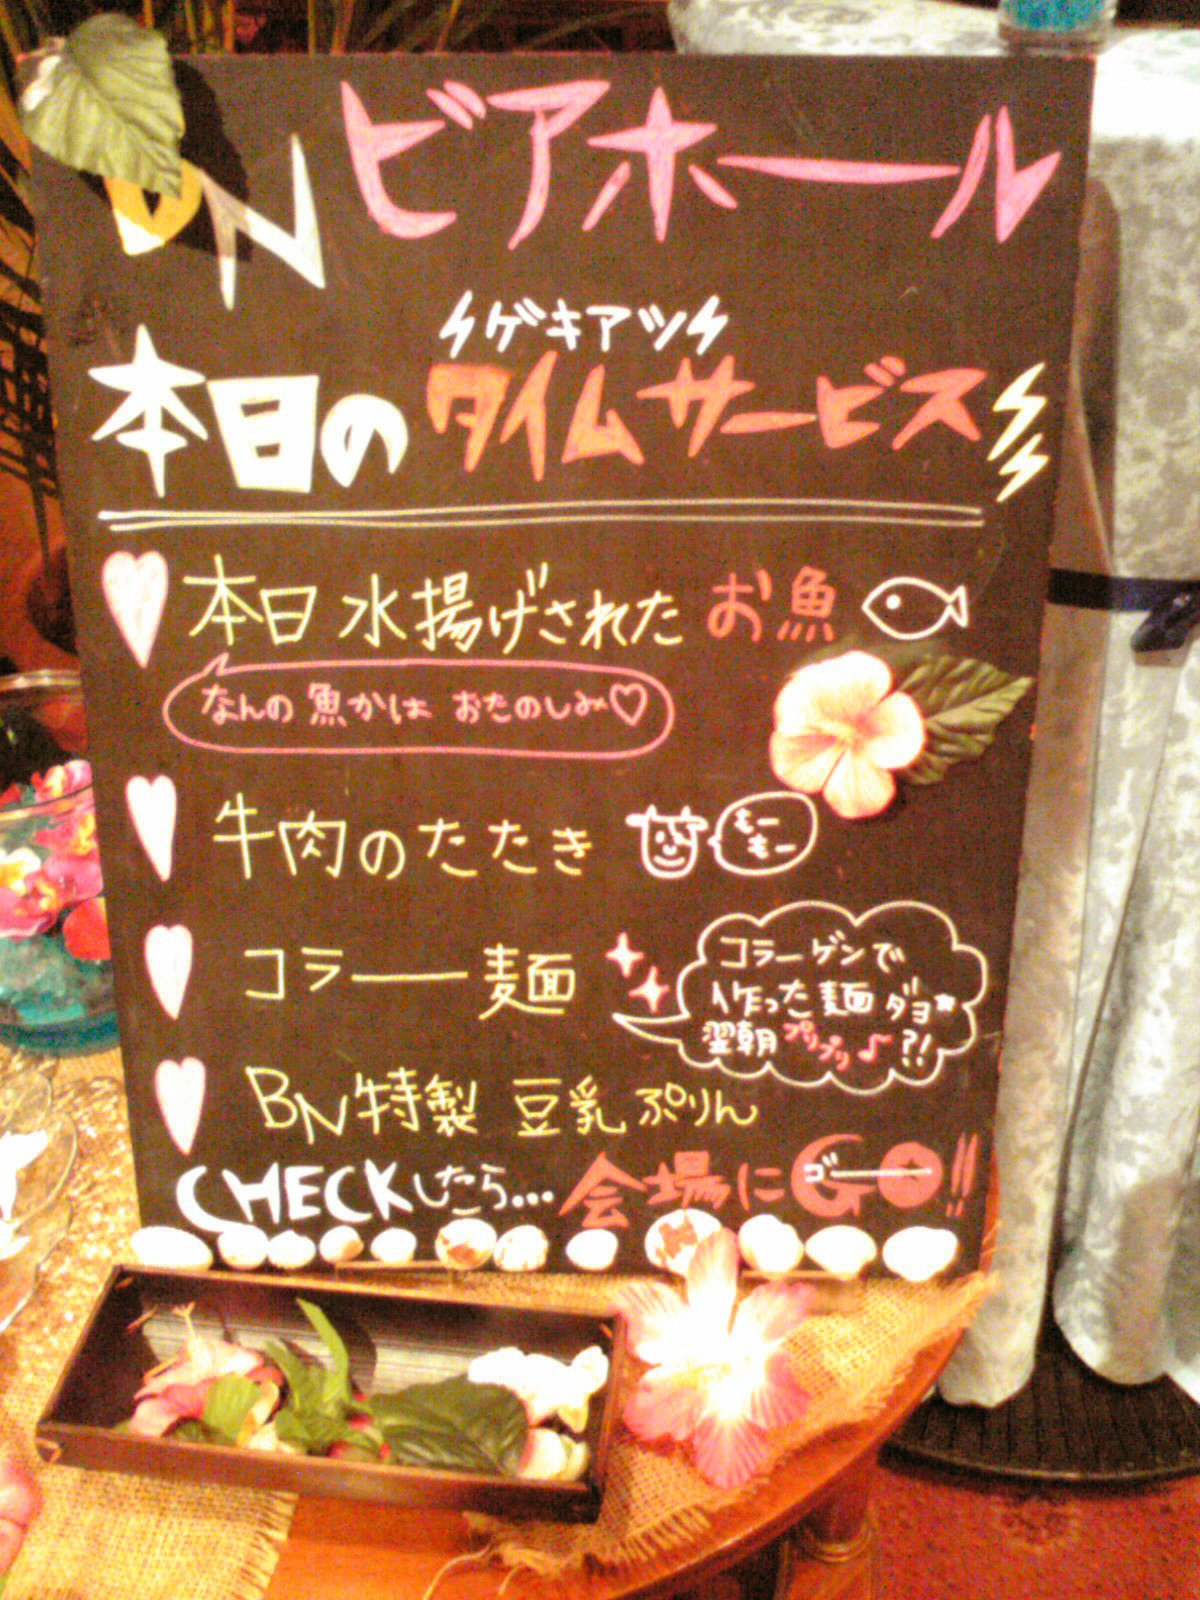 BN ビアホール
ゲキアツ
本日のタイムサービス
本日水揚げされたお魚
なんの魚かは おたのしみ♡
牛肉のたたき
もー
もー
コラー麺
コラーゲンで
作った麺ダョ
翌朝プリプリ♪?!
BN特製 豆乳ぷりん
CHECKしたら... 会場にGO!!
ゴー